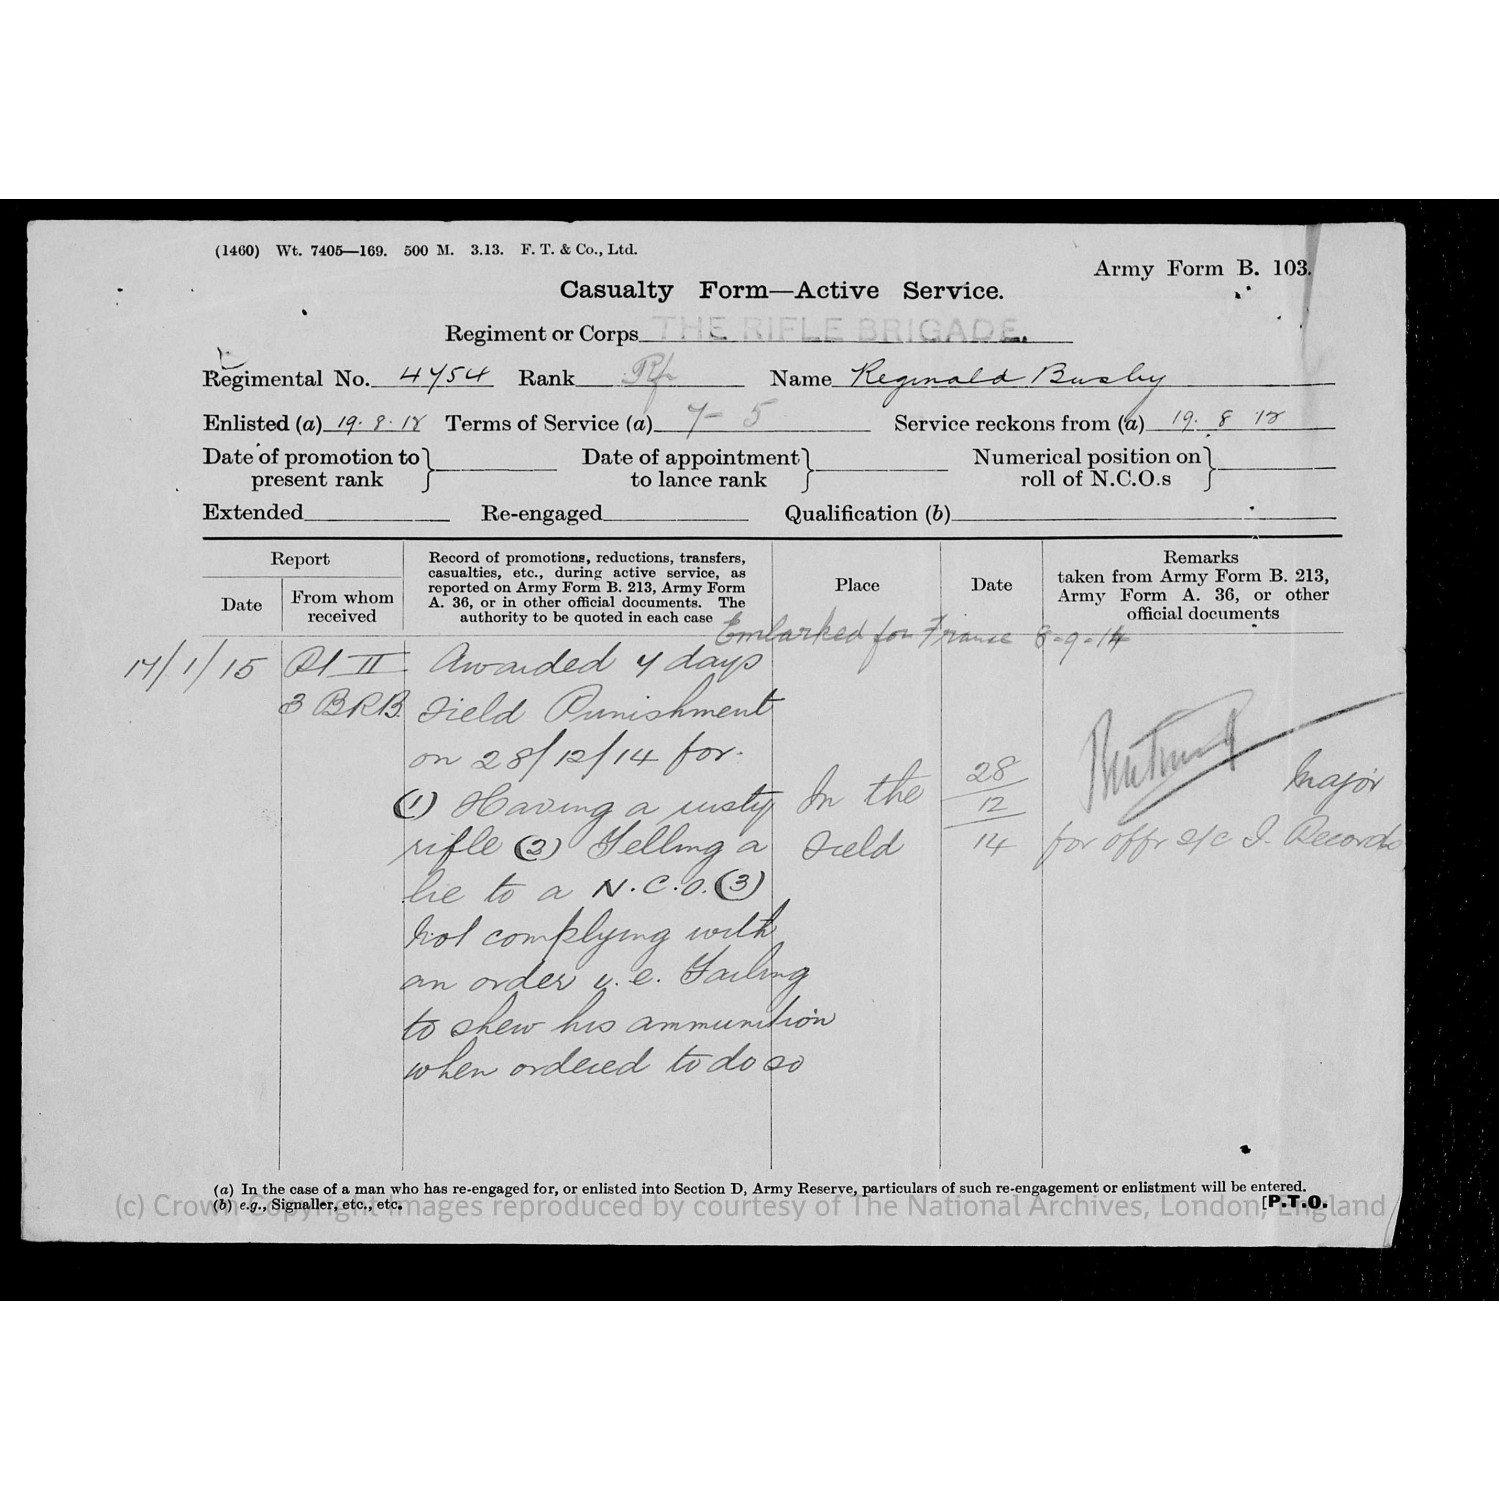 (1460) Wt. 7405—169. 500 M. 3.13. F. T. & Co., Ltd.
Army Form B. 103.
Casualty Form—Active Service.
Regiment or Corps THE RIFLE BRIGADE.
Regimental No. 4754 Rank Rfn Name Reginald Busby
Enlisted (a) 19.8.12 Terms of Service (a) 7-5 Service reckons from (a) 19.8.12
Date of promotion to present rank } Date of appointment to lance rank } Numerical position on roll of N.C.O.s }
Extended Re-engaged Qualification (b)
Report
Date
From whom received
Record of promotions, reductions, transfers,
casualties, etc., during active service, as
reported on Army Form B. 213, Army Form
A. 36, or in other official documents. The
authority to be quoted in each case
Place
Date
Remarks
taken from Army Form B. 213,
Army Form A. 36, or other
official documents
Embarked for France 8-9-14
17/1/15 Pt II Awarded 7 days
3 BRB. Field Punishment
on 28/12/14 for
(1) Having a rusty
rifle (2) Telling a
lie to a N.C.O. (3)
Not complying with
an order i.e. Failing
to shew his ammunition
when ordered to do so
In the
Field
28
12
14
Major
for offr i/c I. Records
(a) In the case of a man who has re-engaged for, or enlisted into Section D, Army Reserve, particulars of such re-engagement or enlistment will be entered.
(b) e.g., Signaller, etc., etc.
[P.T.O.
(c) Crown Copyright Images reproduced by courtesy of The National Archives, London, England